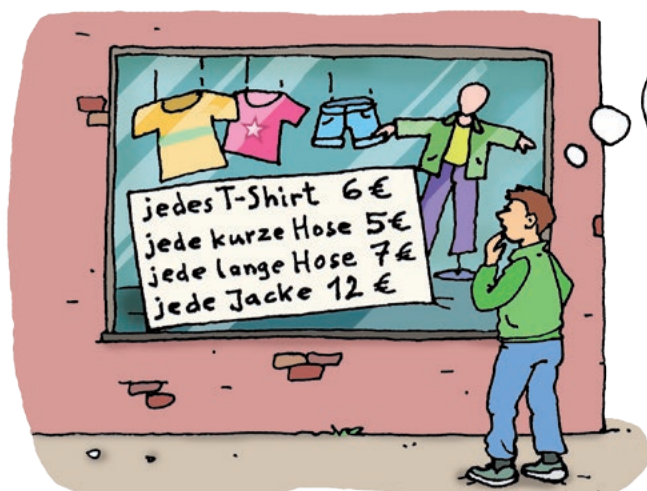 jedes T-Shirt 6 €
jede kurze Hose 5 €
jede lange Hose 7 €
jede Jacke 12 €